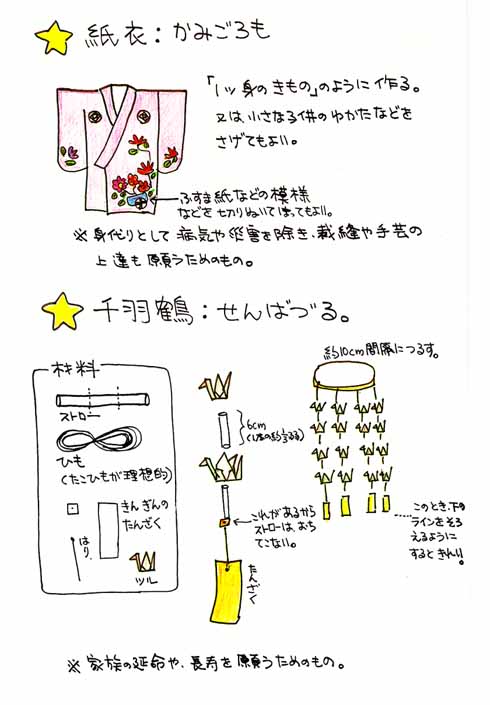 紙衣：かみごろも
「1ツ身のきもの」のように作る。
又は、小さな子供のゆかたなどを
さげてもよい。
ふすま紙などの模様
などを切りぬいてはってもよい。
※身代りとして病気や災害を除き、裁縫や手芸の
上達も願うためのもの。
千羽鶴：せんばづる。
材料
ストロー
ひも
(たこひもが理想的)
きんぎんの
たんざく
はり
ツル
6cm
これがあるから
ストローは、おち
てこない。
たんざく
約10cm間隔につるす。
このとき、下の
ラインをそろ
えるように
するときれい!
※家族の延命や、長寿を願うためのもの。